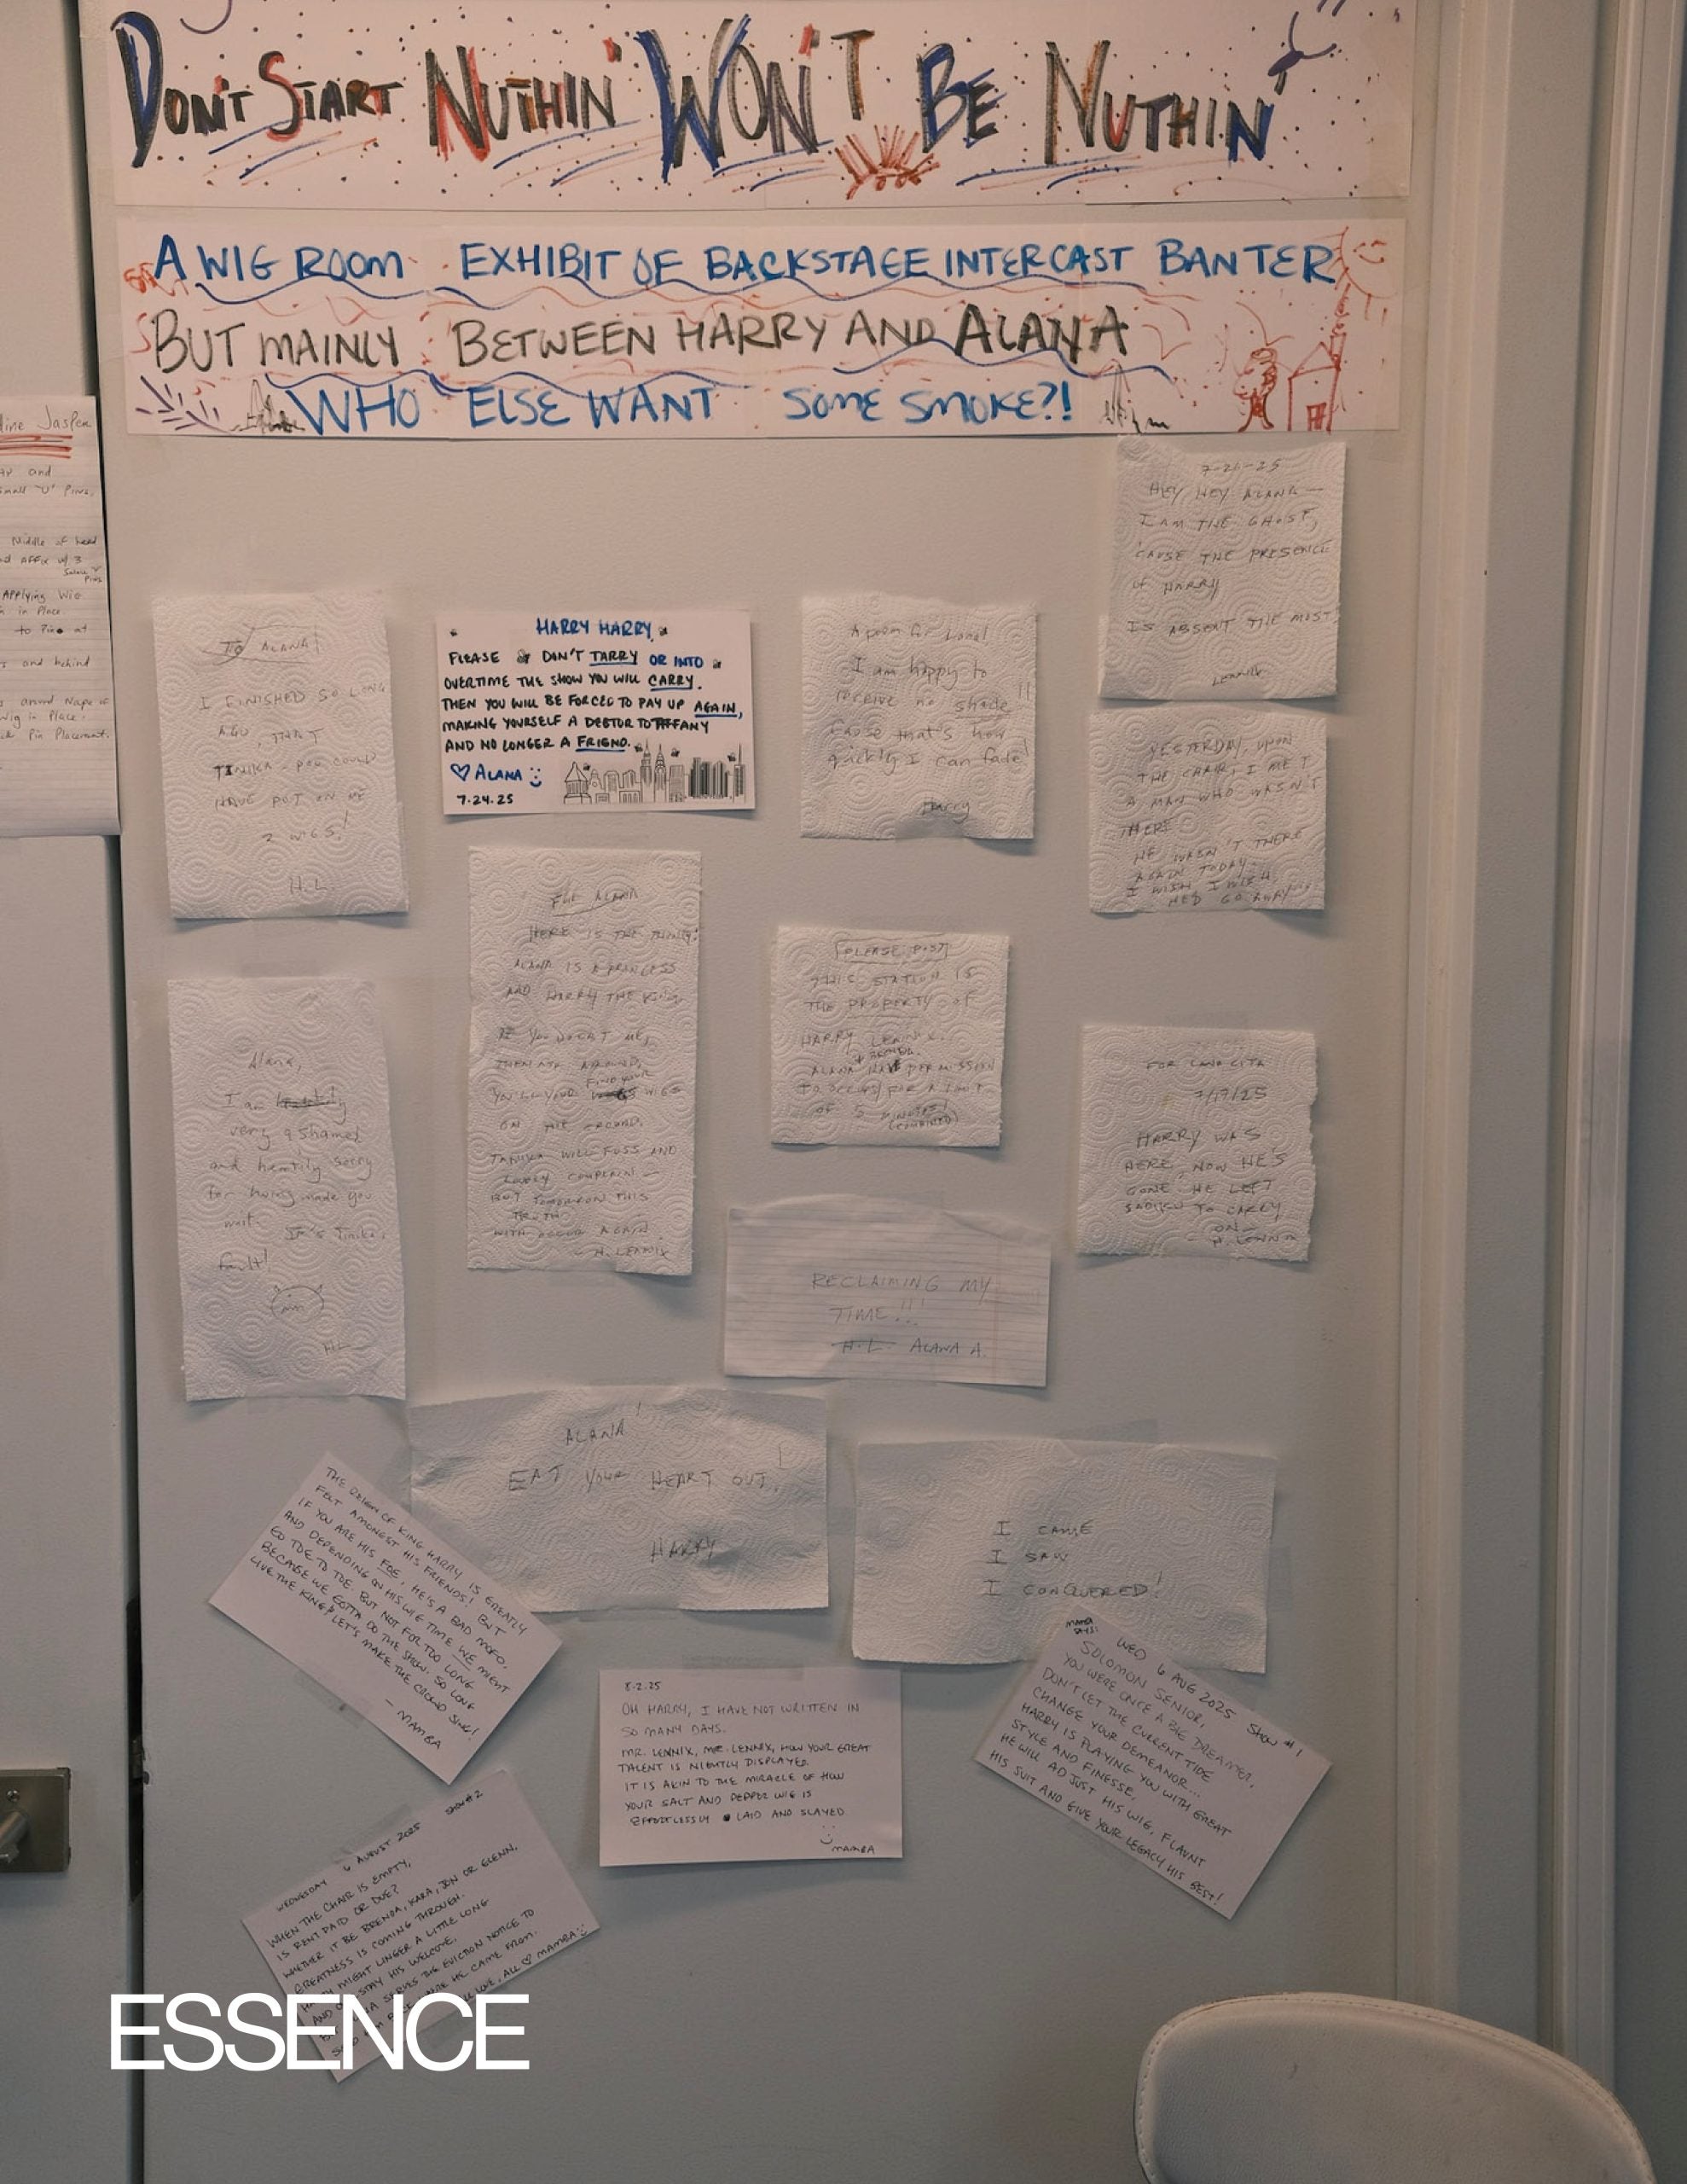 DON'T START NUTHIN' WON'T BE NUTHIN'
A WIG ROOM EXHIBIT OF BACKSTAGE INTERCAST BANTER
BUT MAINLY BETWEEN HARRY AND ALANA
WHO ELSE WANT SOME SMOKE?!
Middle of head
Applying Wig
in Place
and behind
around Nape of
Wig in Place.
Pin Placement.
7-21-25
HEY HEY ALANA —
I AM THE GHOST,
'CAUSE THE PRESENCE
OF HARRY
IS ABSENT THE MOST!
LENNIX
TO ALANA!
I FINISHED SO LONG
AGO, THAT
TINIKA - POO COULD
HAVE PUT ON ME
2 WIGS!
H.L.
HARRY HARRY
PLEASE DON'T TARRY OR INTO
OVERTIME THE SHOW YOU WILL CARRY.
THEN YOU WILL BE FORCED TO PAY UP AGAIN,
MAKING YOURSELF A DEBTOR TO TIFFANY
AND NO LONGER A FRIEND.
♡ ALANA
7.24.25
A poem for Lana!
I am happy to
receive no shade
Cause that's how
quickly I can fade!
Harry
YESTERDAY, UPON
THE CHAIR, I MET
A MAN WHO WASN'T
THERE
HE WASN'T THERE
AGAIN TODAY.
I WISH I WISH
HE'D GO AWAY
FOR ALANA
HERE IS THE THING:
ALANA IS A PRINCESS
AND HARRY THE KING.
IF YOU DOUBT ME,
THEN ASK AROUND,
YOU'LL FIND YOUR WIGS
ON THE GROUND.
TANIKA WILL FUSS AND
LOUDLY COMPLAIN —
BUT TOMORROW THIS
TRUTH
WITH OCCUR AGAIN.
- H. LENNIX
PLEASE POST
THIS STATION IS
THE PROPERTY OF
HARRY LENNIX.
+ BRENDA.
ALANA HAVE PERMISSION
TO OCCUPY FOR A LIMIT
OF 5 MINUTES!
(COMBINED)
Alana,
I am
very ashamed
and heartily sorry
for having made you
wait. It's Tinika's
fault!
H.L.
FOR LANA CITA
7/17/25
HARRY WAS
HERE, NOW HE'S
GONE HE LEFT
TO CARRY
ON-
- H. LENNIX
RECLAIMING MY
TIME!!!
H.L. ALANA A.
ALANA!
EAT YOUR HEART OUT!
HARRY
I CAME
I SAW
I CONQUERED!
THE REIGN OF KING HARRY IS GREATLY
FELT AMONGST HIS FRIENDS! BUT
IF YOU ARE HIS FOE, HE'S A BAD MOFO,
AND DEPENDING ON HIS WIG TIME WE MIGHT
GO TOE TO TOE. BUT NOT FOR TOO LONG
BECAUSE WE GOTTA DO THE SHOW. SO LONG
LIVE THE KING! LET'S MAKE THE CROWD SING!
- MAMBA
8.2.25
OH HARRY, I HAVE NOT WRITTEN IN
SO MANY DAYS.
MR. LENNIX, MR. LENNIX, HOW YOUR GREAT
TALENT IS NIGHTLY DISPLAYED
IT IS AKIN TO THE MIRACLE OF HOW
YOUR SALT AND PEPPER WIG IS
EFFORTLESSLY LAID AND SLAYED
MAMBA
MAMBA SAYS:
WED 6 AUG 2025 SHOW #1
SOLOMON SENIOR,
YOU WERE ONCE A BIG DREAMER,
DON'T LET THE CURRENT TIDE
CHANGE YOUR DEMEANOR...
HARRY IS PLAYING YOU WITH GREAT
STYLE AND FINESSE,
HE WILL ADJUST HIS WIG, FLAUNT
HIS SUIT AND GIVE YOUR LEGACY HIS BEST!
SHOW #2
WEDNESDAY 6 AUGUST 2025
WHEN THE CHAIR IS EMPTY,
IS RENT PAID OR DUE?
WHETHER IT BE BRENDA, KARA, JON OR GLENN,
GREATNESS IS COMING THROUGH.
MIGHT LINGER A LITTLE LONG
AND STAY HIS WELCOME,
SERVES THE EVICTION NOTICE TO
HE CAME FROM.
LOVE, ALL ♡ MAMBA
ESSENCE